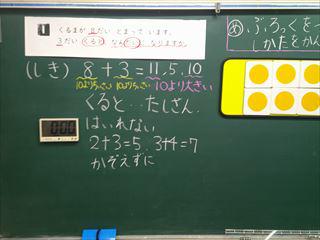 1
くるまが 8だい とまって います。
3だい くると なんだいに なりますか。
め ぶろっくを
しかたをかん
(しき) 8+3=11.5.10
10よりちいさい 10よりちいさい 10より大きい
くると…たしざん
はいれない
2+3=5. 3+4=7
かぞえずに
0:00